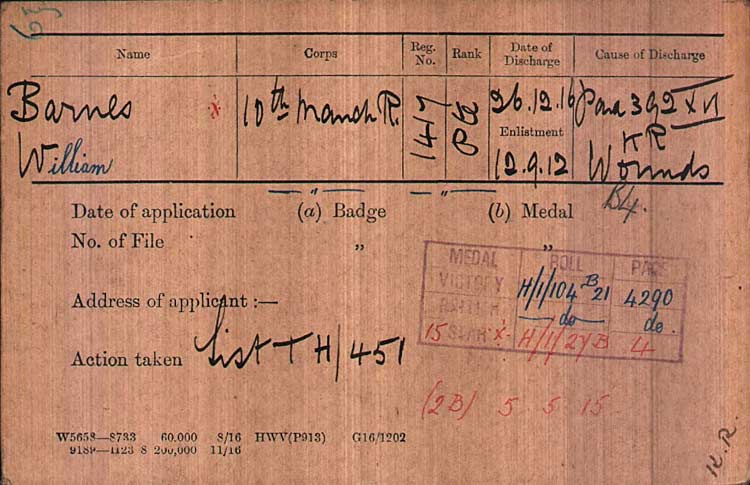 Name Corps Reg. No. Rank Date of Discharge Cause of Discharge
Barnes x 10th Manch R. 1417 Pte 26.12.16 Para 392 XVI
Enlistment K R
William 12.9.12 Wounds
— " — — " — B4.
Date of application (a) Badge (b) Medal
No. of File " "
MEDAL ROLL PAGE
VICTORY H/1/104 B 21 4290
BRITISH do do.
Address of applicant :—
15 STAR X. H/1/27B 4
Action taken List T H/451
(2B) 5 5 15
W5658—8733 60.000 8/16 HWV(P913) G16/1202
9189—1123 S 200,000 11/16
K.R.